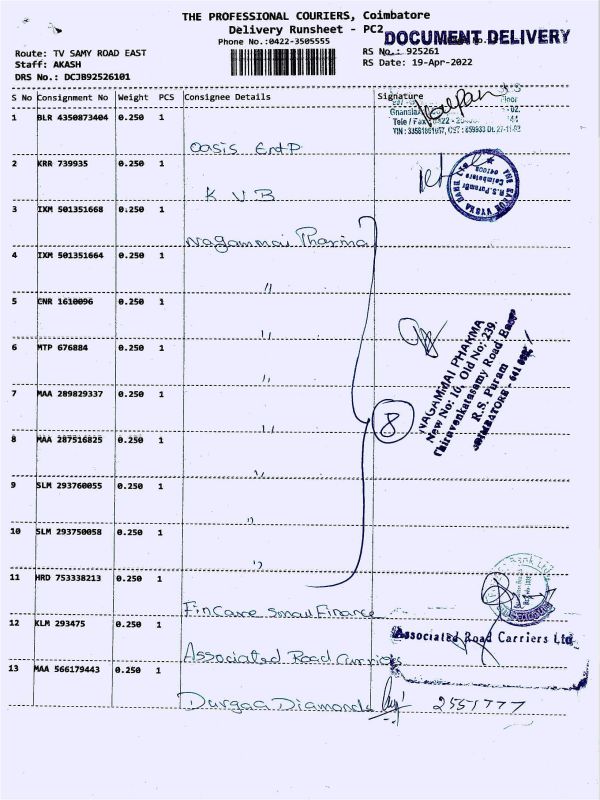 THE PROFESSIONAL COURIERS, Coimbatore
Delivery Runsheet - PC2
DOCUMENT DELIVERY
Phone No.:0422-3505555
Route: TV SAMY ROAD EAST
RS No.: 925261
Staff: AKASH
RS Date: 19-Apr-2022
DRS No.: DCJ892526101
S No Consignment No Weight PCS Consignee Details Signature
1 BLR 4350873404 0.250 1
Floor
Tele / Fax
Oasis Ent P
2 KRR 739935 0.250 1
K V B
R.S.Puram
Coimbatore
3 IXM 501351668 0.250 1
Nagammai Pharma
4 IXM 501351664 0.250 1
"
5 CNR 1610096 0.250 1
"
6 MTP 676884 0.250 1
"
NAGAMMAI PHARMA
New No: 10, Old No: 239,
Thiruvenkatasamy Road East
R.S. Puram
COIMBATORE - 641 002
7 MAA 289829337 0.250 1
"
8
8 MAA 287516825 0.250 1
"
9 SLM 293760055 0.250 1
"
10 SLM 293750058 0.250 1
"
11 HRD 753338213 0.250 1
FinCare Small Finance
12 KLM 293475 0.250 1
Associated Road Carriers
Associated Road Carriers Ltd
13 MAA 566179443 0.250 1
Durgaa Diamonds
2551777